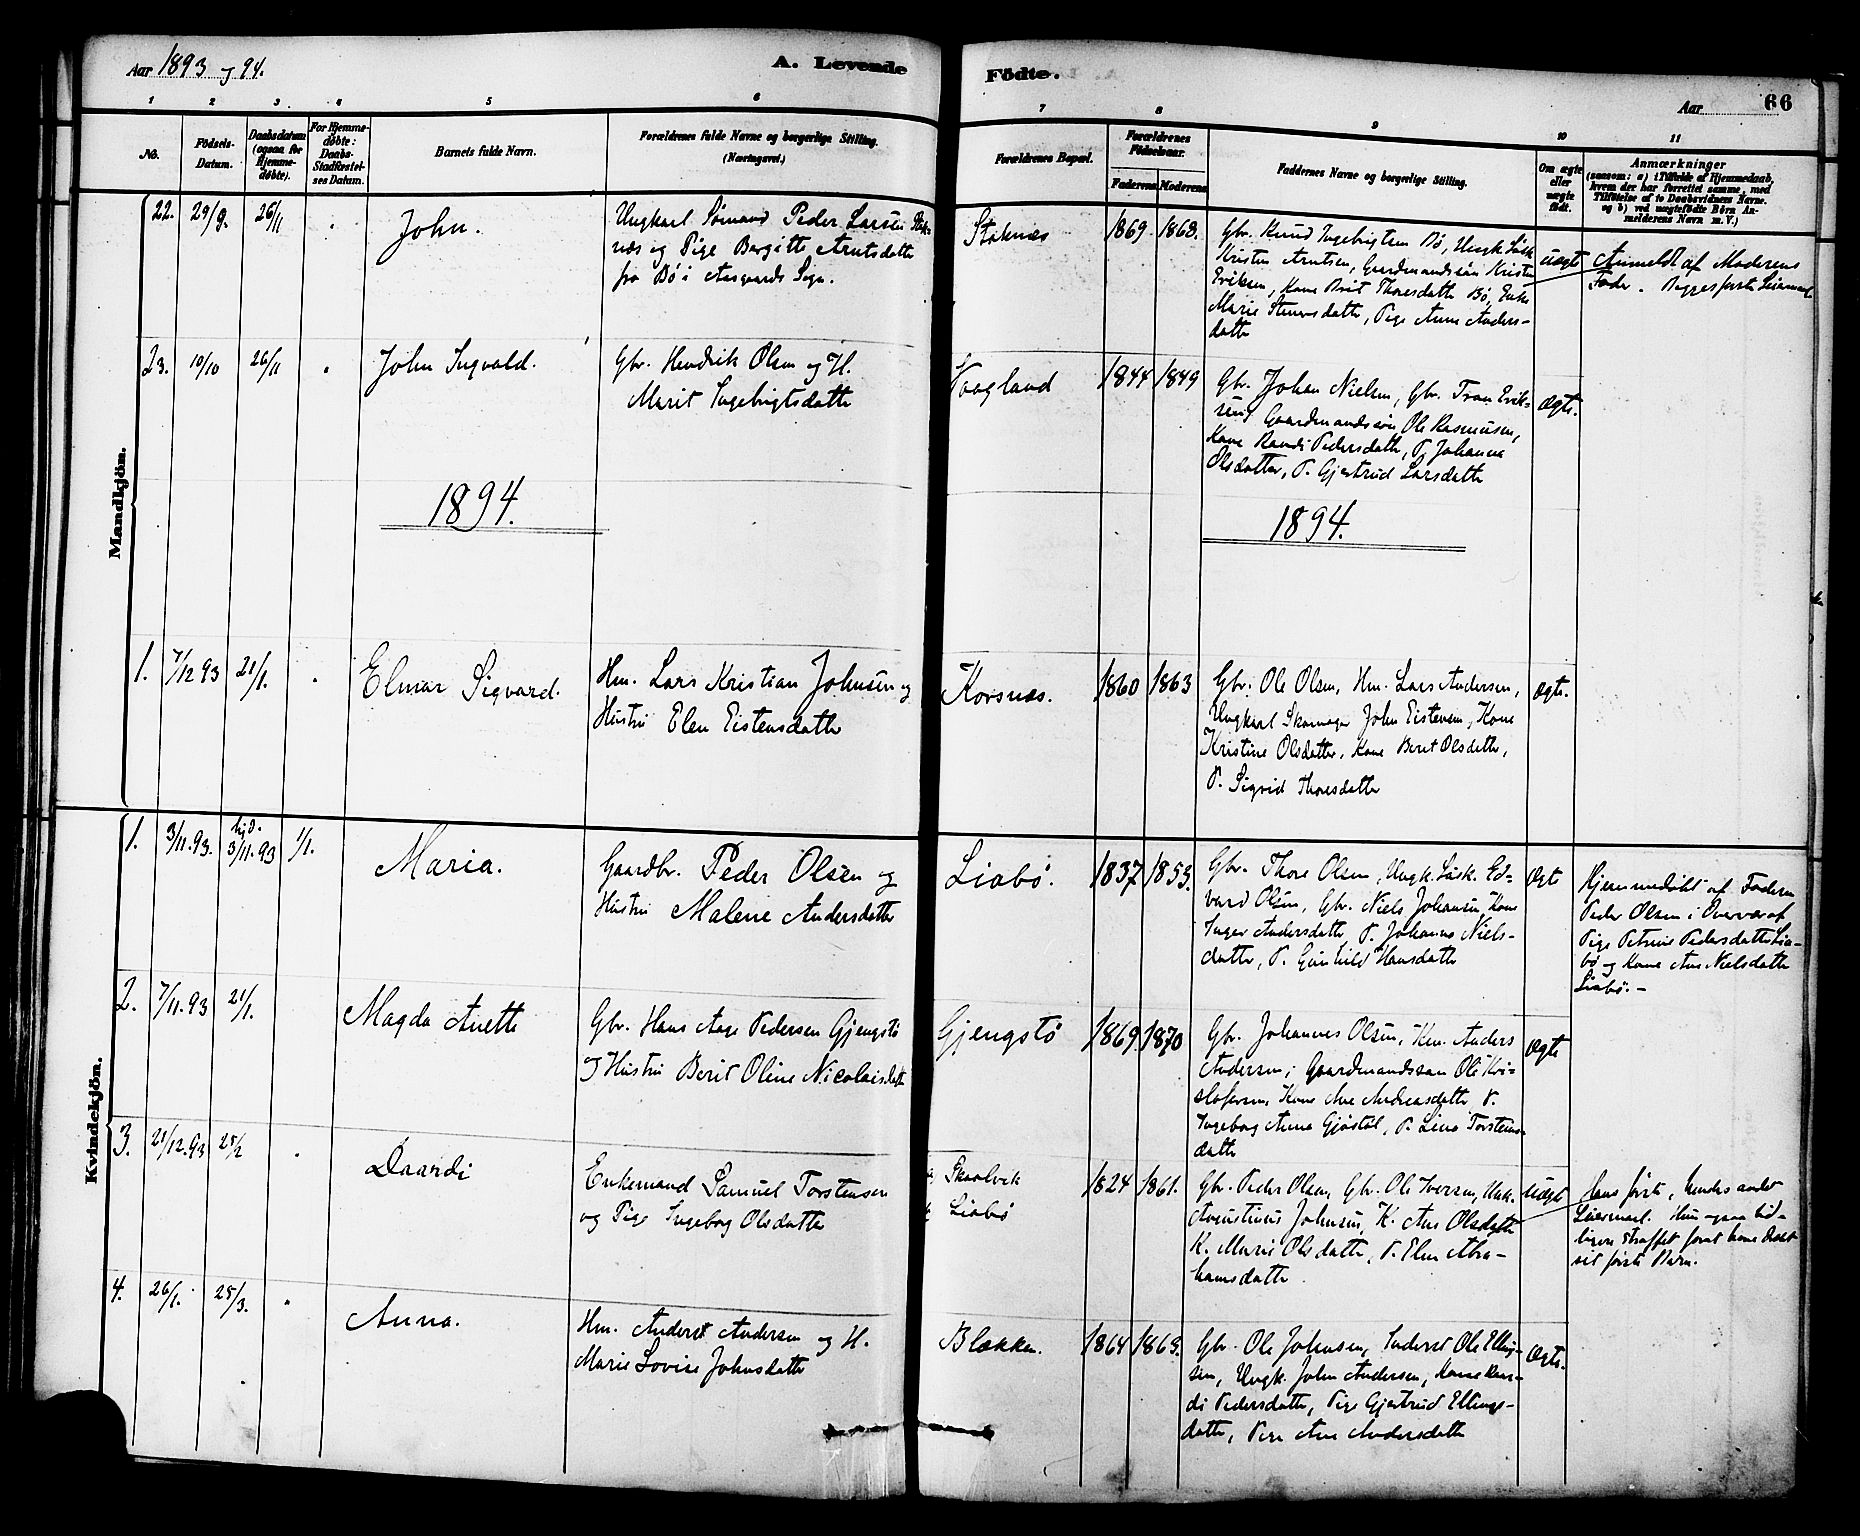 Aar 1893 og 94.
A. Levende
Födte.
Aar
66
1 2 3 4 5 6 7 8 9 10 11
No.
Födsels-
Datum.
Daabsdatum
(ogsaa for
Hjemme-
døbte).
For Hjemme-
døbte:
Daabs-
Stadfæstel-
ses Datum.
Barnets fulde Navn.
Forældrenes fulde Navne og borgerlige Stilling.
(Næringsvei.)
Forældrenes Bopæl.
Forældrenes
Födselsaar.
Faderens
Moderens
Faddernes Navne og borgerlige Stilling.
Om ægte
eller
uægte
født.
Anmærkninger
(saasom: a) i Tilfælde af Hjemmedaab,
hvem der har forrettet samme, med
Tilføielse af to Daabsvidners Navne.
og b) ved uægtefødte Børn An-
melderens Navn m. V.)
Mandkjön.
22.
29/9.
26/11
John.
Ungkarl Sømand Peder Larsen Stok-
næs og Pige Bergitte Arntsdatter
fra Bø i Aasgaards Sogn.
Stoknæs
1869. 1868.
Gbr. Knud Ingebrigtsen Bø, Ungk.
Kristen Arntsen, Gaardmandssøn Kristen
Eriksen, Kone Brit Thoresdatter Bø, Enke
Marie Steners datter, Pige Anne Anders-
datter
uægte
Anmeldt af Moderens
Fader. Begges første Leiermaal
23.
10/10
26/11
John Ingvald.
Gbr. Hendrik Olsen og H.
Marit Ingebrigtsdatter
Vaagland
1844 1849
Gbr. Johan Nielsen, Gbr. Tron Erik-
sen, Gaardmandssøn Ole Rasmussen,
Kone Randi Pedersdatter, P. Johanna
Olsdatter, P. Gjertrud Larsdatter
Ægte.
1894.
1894.
1.
7/12 93
21/1.
Elmar Sigvard.
Hm. Lars Kristian Johnsen og
Hustru Elen Eistensdatter
Korsnæs.
1860 1863
Gbr. Ole Olsen, Hm. Lars Andersen,
Ungkarl Skomager John Eistensen, Kone
Kristine Olsdatter, Kone Berit Olsdatter,
P. Sigrid Thoresdatter
Ægte.
Kvindekjön.
1.
3/11.93.
hjd.
3/11.93
1/1.
Maria.
Gaardbr. Peder Olsen og
Hustru Malene Andersdatter
Liabø.
1837 1853.
Gbr. Thore Olsen, Ungk. Ed-
vard Olsen, Gbr. Niels Johansen, Kone
Inger Andersdatter, P. Johanna Niels-
datter, P. Gunhild Hansdatter
Ægte
Hjemmedøbt af Faderen
Peder Olsen i Overvær af
Pige Petrine Pedersdatter Lia-
bø og Kone Ane Nielsdatter
Liabø. -
2.
7/11.93
21/1.
Magda Anette
Gbr. Hans Aage Pedersen Gjengstø
og Hustru Berit Oline Nicolaisdatter
Gjengstø
1869. 1870
Gbr. Johannes Olsen, Hm. Anders
Andersen, Gaardmandssøn Ole Kri-
stofersen, Kone Ane Andreasdatter P.
Ingeborg Anna Gjøstøl, P. Lina Torstens-
datter
Ægte
3.
21/12.93
25/2
Daardi
Enkemand Samuel Torstensen
og Pige Ingeborg Olsdatter
Skaalvik
Liabø
1824 1861.
Gbr. Peder Olsen, Gbr. Ole Iversen, Ungk.
Augustinus Johnsen, K. Ane Olsdatter
K. Marie Olsdatter, P. Elen Abra-
hamsdatter.
Uægte
Hans første, hendes andet
Leiermaal. Hun ogsaa tid-
ligere straffet
sit første Barn.
4.
26/1.
25/3.
Anna.
Hm. Anders Andersen og H.
Marie Lovise Johnsdatter
Blækken.
1864 1863.
Gbr. Ole Johnsen, Inderst Ole Elling-
sen, Ungk. John Andersen, Kone Ran-
di Pedersdatter, Pige Gjertrud Ellings-
datter, Pige Ane Andersdatter
Ægte.